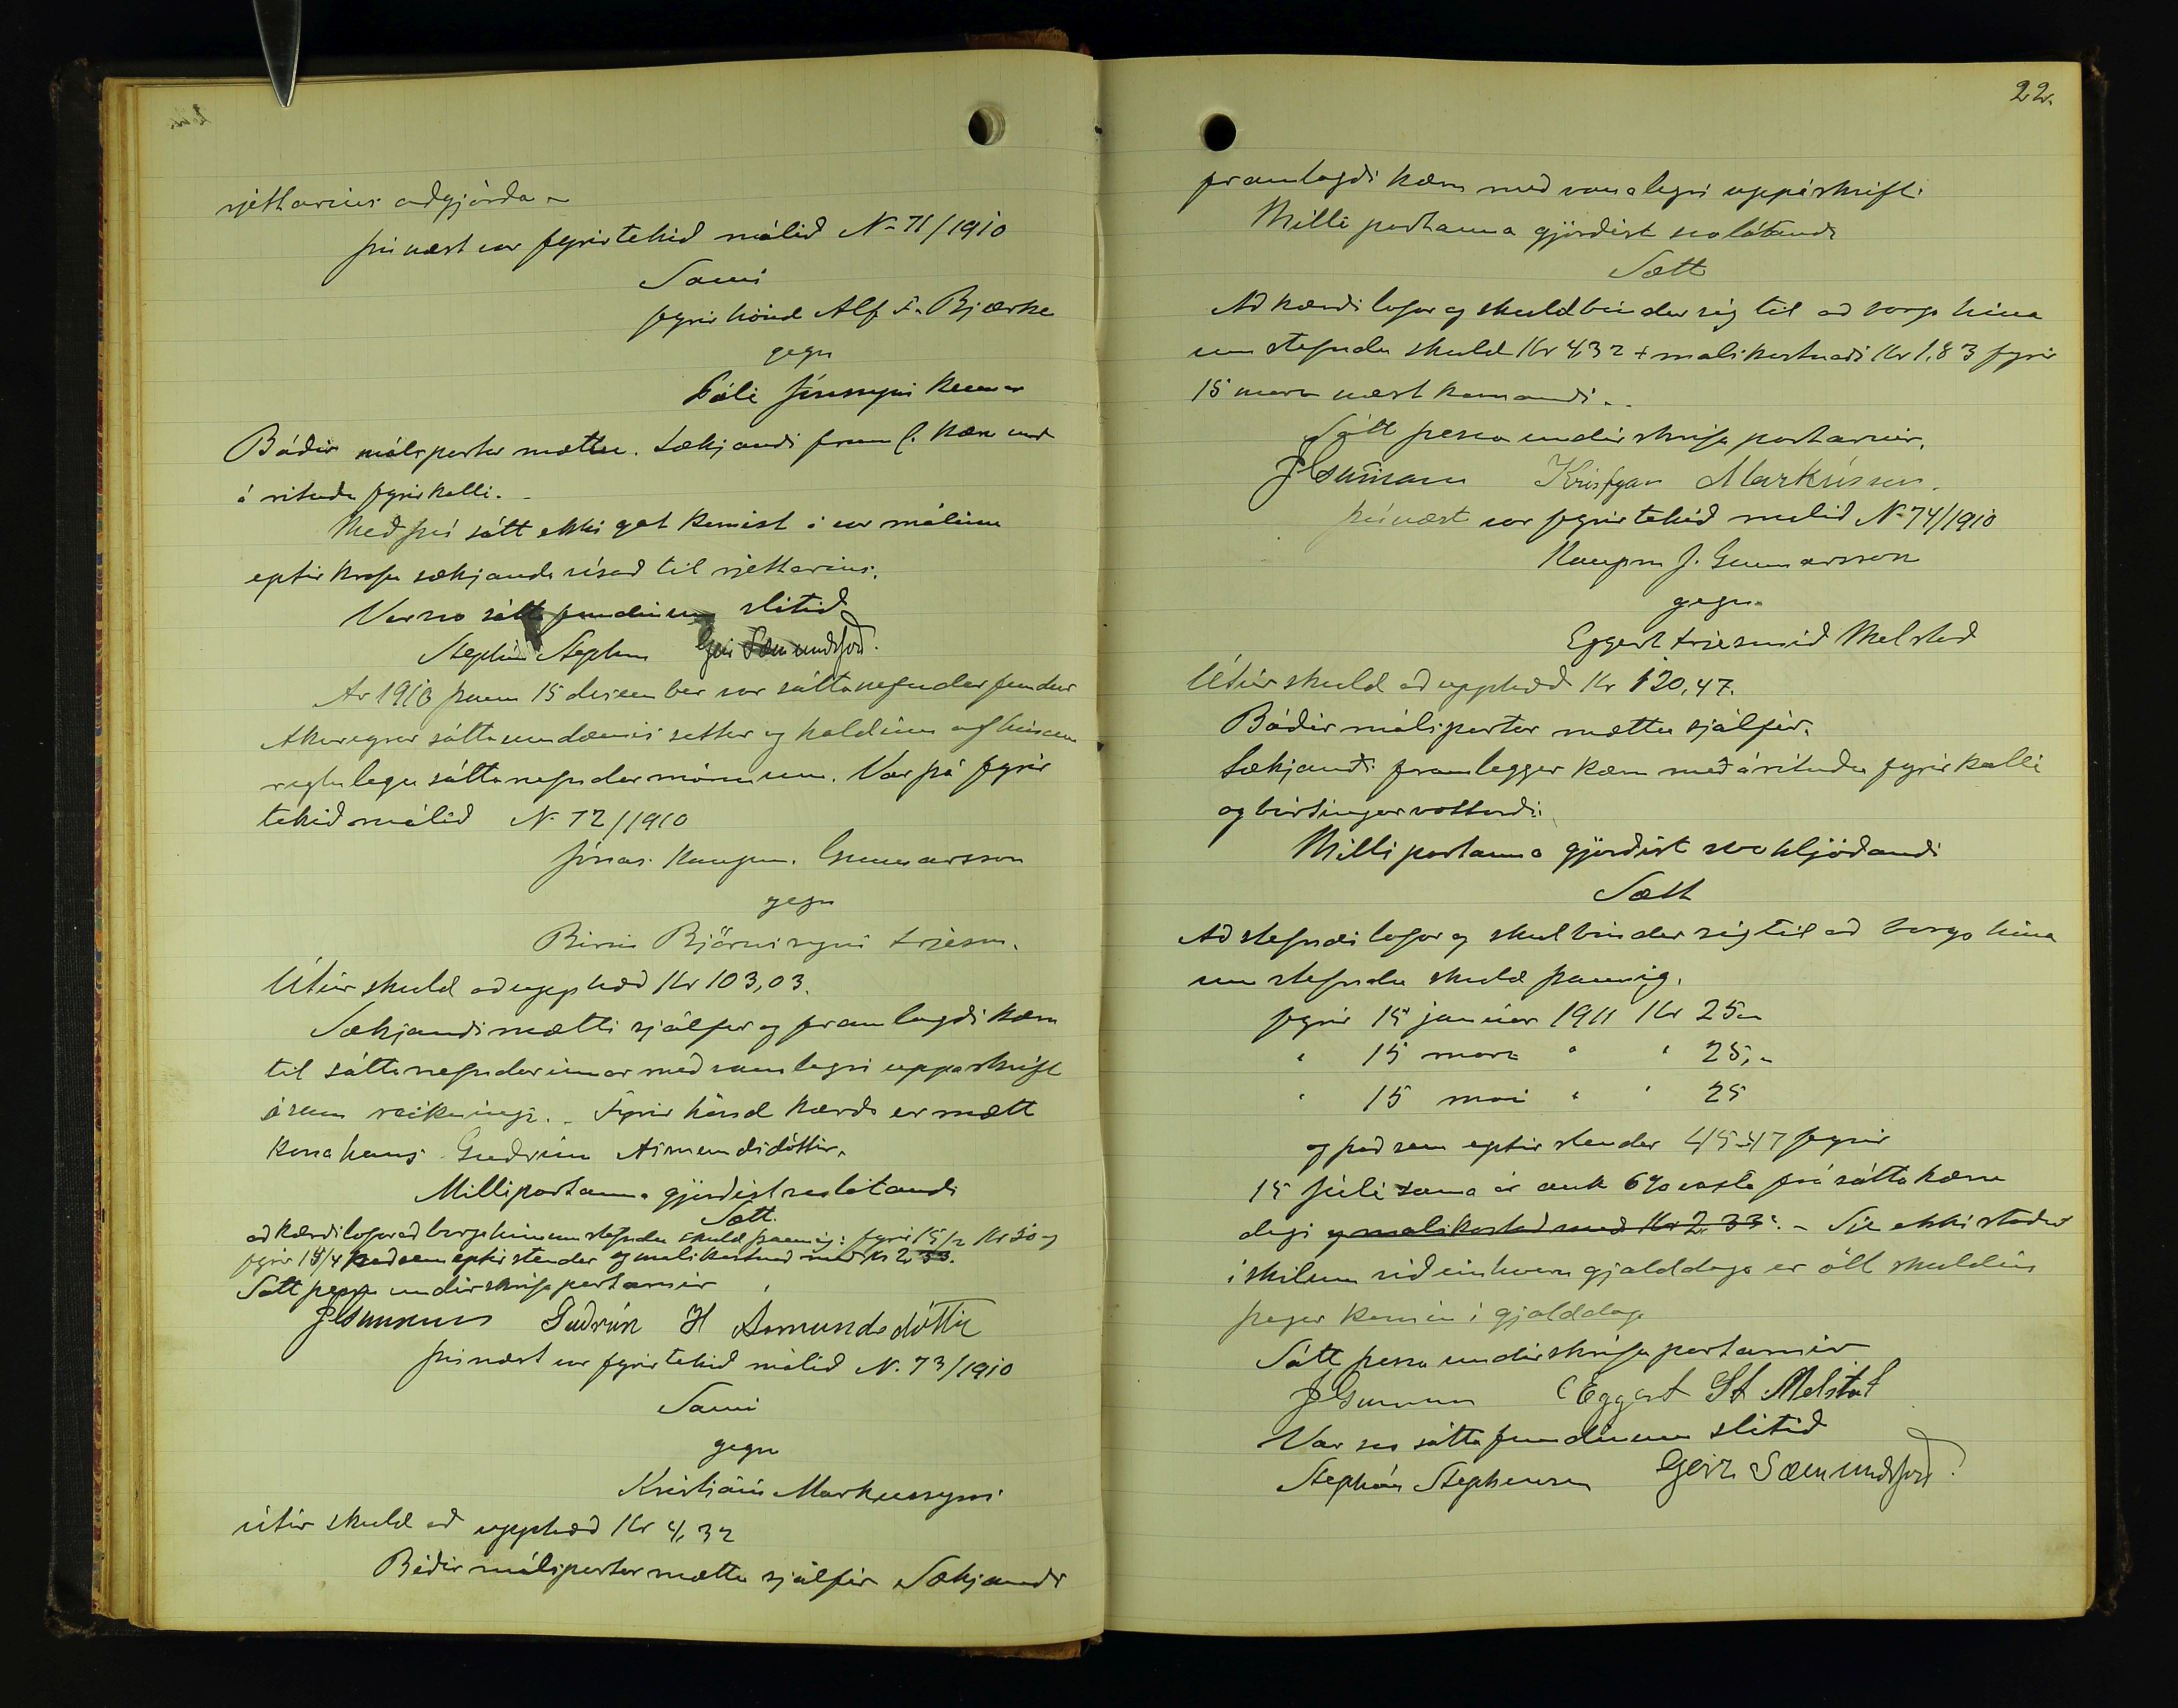 rjettarins aðgjörða -
því næst var fyrirtekið málið N- 71/1910
Sami
fyrir hönd Alf F. Bjærke
gegn
Páli Jónssyni kennar
Báðir málspartar mættu. Sækjandi framl. kæru með
á rituðu fyrirkalli. -
Með því sátt ekki gat komist á var málinu
eptir kröfu sækjanda vísað til rjettarins.
Var svo sáttafundinum slitið
Stephán Stephen Geir Sæmundsson.
Ár 1910 þann 15 desember var sáttanefndar fundur
Akureyrar sáttaumdæmis settur og haldinn af hinum
reglulegu sáttanefndarmönnum. Var þá fyrir
tekið málið N. 72/1910
Jónas kaupm. Gunnarsson
gegn
Birni Björnssyni trjesm.
Útúr skuld að upphæð Kr 103,03.
Sækjandi mætti sjálfur og framlagði kæru
til sáttanefndarinnar með vanalegri uppáskrift
ásam reikningi. - Fyrir hönd kærða er mætt
kona hans Guðrún Asmundsdóttir.
Milli partanna gjörðist svolátandi
Sætt.
að kærði lofar að borga hina umstefndu skuld þannig: fyrir 15/2 Kr 50 og
fyrir 15/4 það sem eptir stendur og málskostnað með kr 2,33.
Sátt þessa undirskrifa partarnir
JGunnarss Guðrún H Ásmundsdóttir
því næst var fyrirtekið málið N. 73/1910
Sami
gegn
Kristjáni Markussyni
útúr skuld að upphæð Kr 4,32
Báðir málspartar mættu sjálfir Sækjandi
22.
framlagði kæru með vanalegri uppáskrift.
Milli partanna gjörðist svolátandi
Sætt
Að kærði lofar og skuldbindur sig til að borga hina
umstefndu skuld Kr 432 + málskostnaði Kr 1,83 fyrir
15 mars næst komandi. -
Sátt þessa undirskrifa partarnir.
JGunnarss Kristján Markússon.
því næst var fyrirtekið málið N- 74/1910
Kaupm J. Gunnarsson
gegn
Eggert trjesmið Melstað
Útúr skuld að upphæð Kr 120,47.
Báðir málspartar mættu sjálfir.
Sækjandi framleggur kæru með árituðu fyrirkalli
og birtingarvottorði.
Milli partanna gjörðist svohljóðandi
Sætt
Að stefndi lofar og skulbindur sig til að borga hina
umstefndu skuld þannig.
fyrir 15 janúar 1911 Kr 25 -
" 15 mars " " 25, -
" 15 mai " " 25
og það sem eptir stendur 45-47 fyrir
15 júlí sama ár auk 6% vaxta frá sáttakæru
degi og málskostnað með Kr 2,33. - Sje ekki staðið
í skilum við einhvern gjalddaga er öll skuldin
þegar komin í gjalddaga
Sátt þessa undirskrifa partarnir
JGunnarss Eggert St Melstað
Var svo sáttafundinum slitið
Stephán Stephensen Geir Sæmundsson.